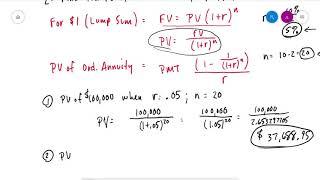 For $1 (Lump Sum) = FV = PV (1+r)^n
PV = FV / (1+r)^n
5%
n = 10·2 = 20
PV of Ord. Annuity = PMT ( (1 - 1/(1+r)^n) / r )
① PV of $100,000 when r = .05 ; n = 20
PV = 100,000 / (1+.05)^20 = 100,000 / (1.05)^20 = 100,000 / 2.653297705
$ 37,688.95
② PV